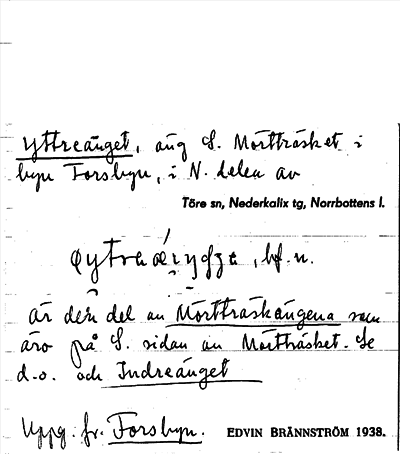 Yttreänget, äng S. Mörtträsket i
byn Forsbyn, i N. delen av
Töre sn, Nederkalix tg, Norrbottens l.
, bf. n.
är den del av Mörtträskängena som
äro på S. sidan av Mörtträsket. Se
d.o. och Indreänget
Uppg. fr. Forsbyn. EDVIN BRÄNNSTRÖM 1938.